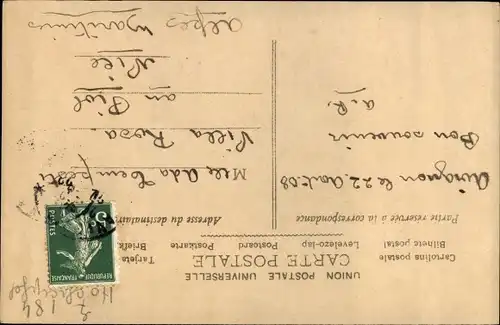 UNION POSTALE UNIVERSELLE
CARTE POSTALE
Cartolina postale
Levelezo-lap
Postcard
Postkarte
Tarjeta
Bilhete postal
Briefk
Partie réservée à la correspondance
Adresse du destinataire
Avignon le 22 Août 08
Bon souvenir
a. R.
Mlle Ada
Villa Rosa.
au Piol
Nice
Alpes
Maritimes
5c
POSTES
REPUBLIQUE
FRANÇAISE
184